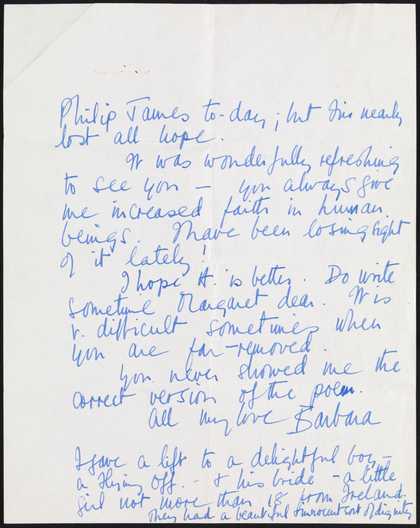 Philip James to-day; but I'm nearly
lost all hope.
It was wonderfully refreshing
to see you — you always give
me increased faith in human
beings. I have been losing sight
of it lately!
I hope H. is better. Do write
sometime Margaret dear. It is
v. difficult sometimes when
you are far-removed.
You never showed me the
correct version of the poem.
All my love Barbara
I gave a left to a delightful boy —
a Flying Off.. & his bride — a little
girl not more than 18 from Ireland.
They had a beautiful & innocent sort of dignity